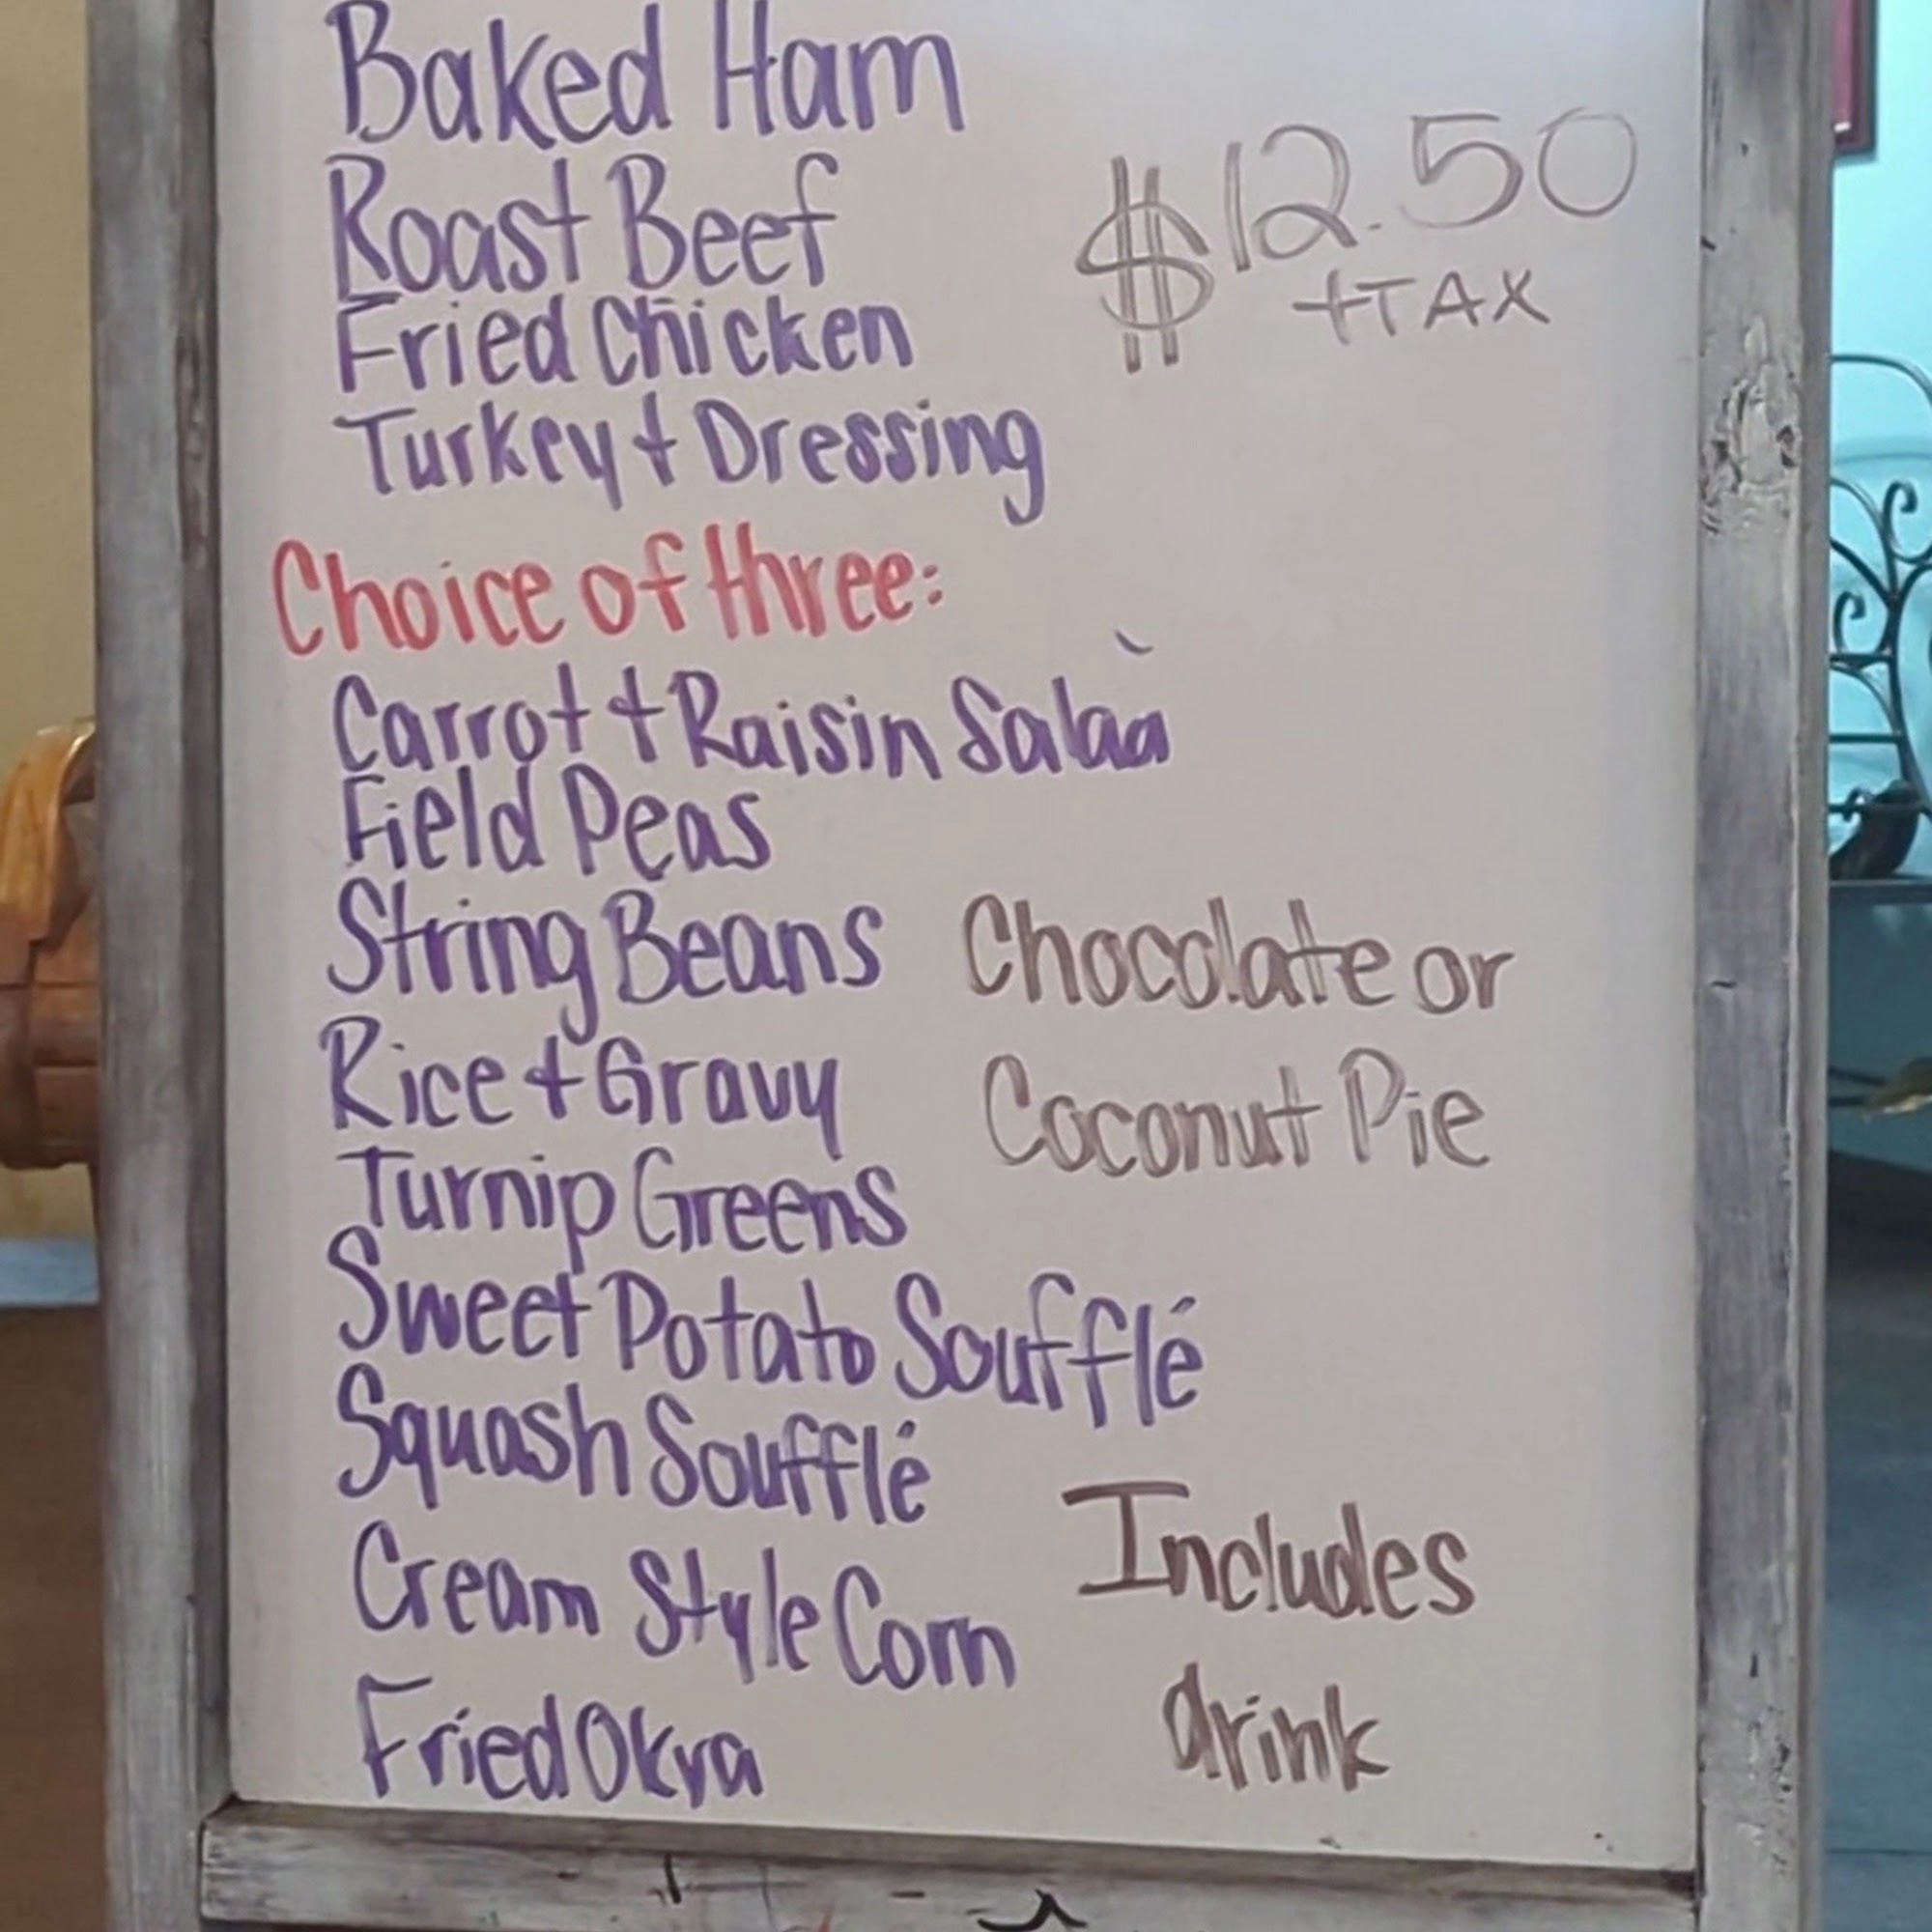 Baked Ham
Roast Beef
$12.50
+TAX
Fried Chicken
Turkey + Dressing
Choice of three:
Carrot + Raisin Salad
Field Peas
String Beans
Rice + Gravy
Chocolate or
Coconut Pie
Turnip Greens
Sweet Potato Soufflé
Squash Soufflé
Cream Style Corn
Fried Okra
Includes
drink